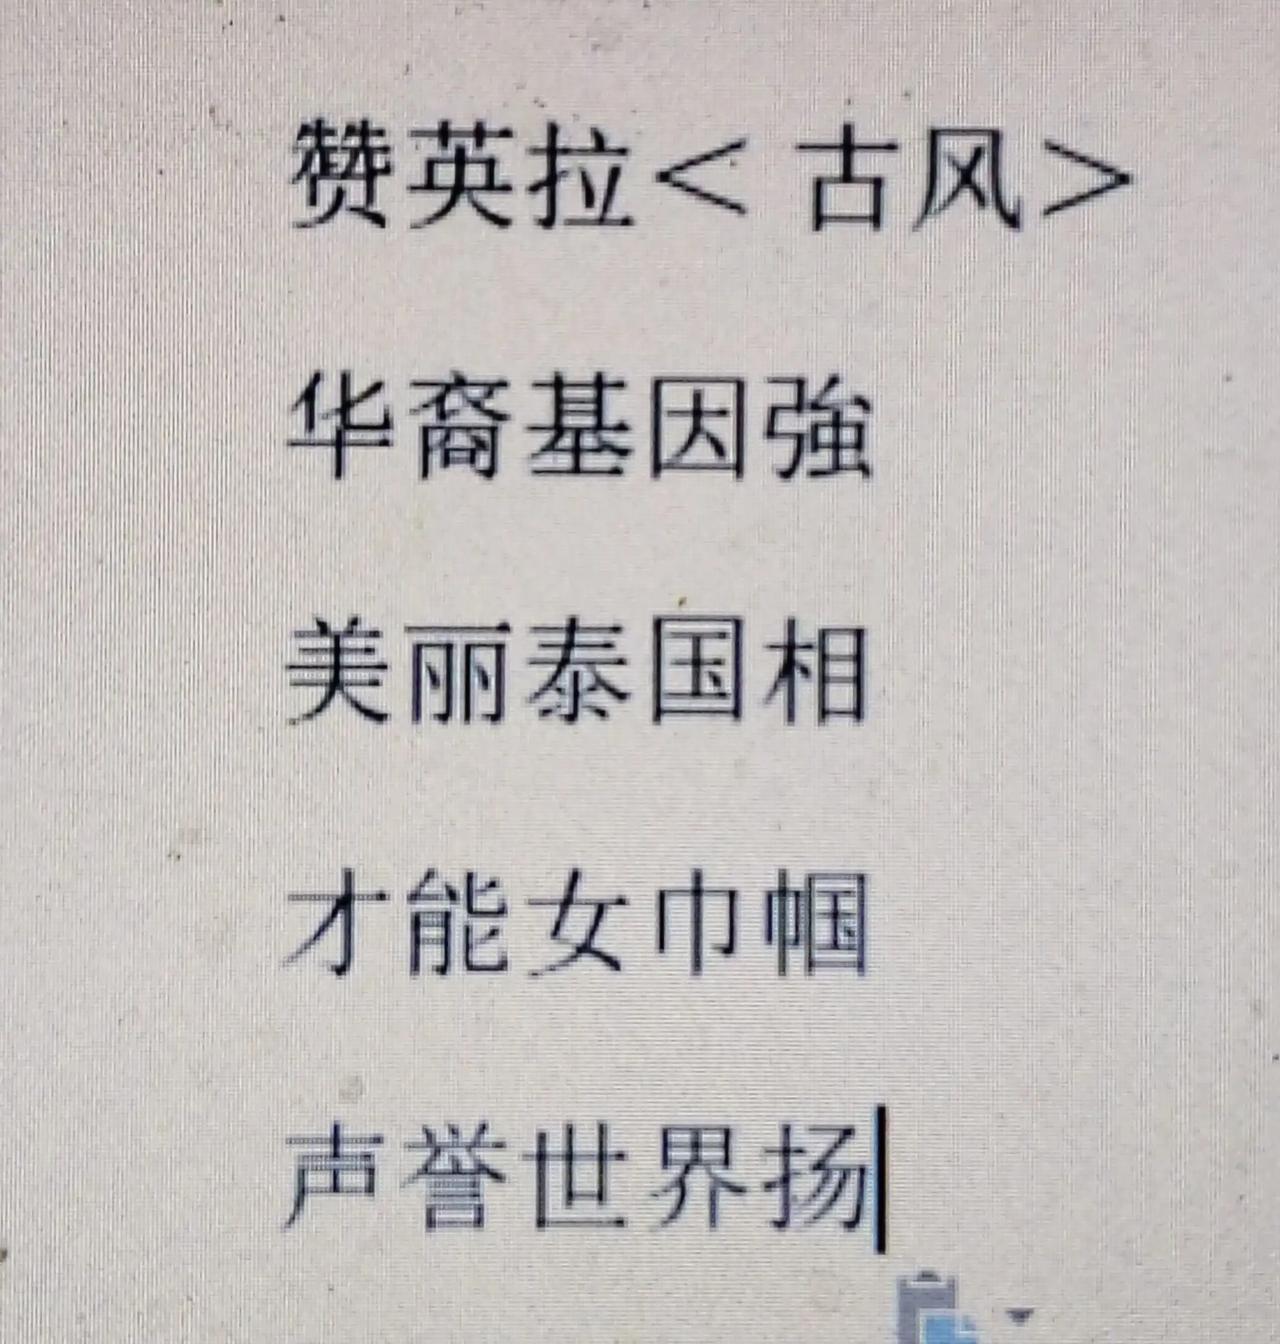 赞英拉< 古风>
华裔基因強
美丽泰国相
才能女巾帼
声誉世界扬